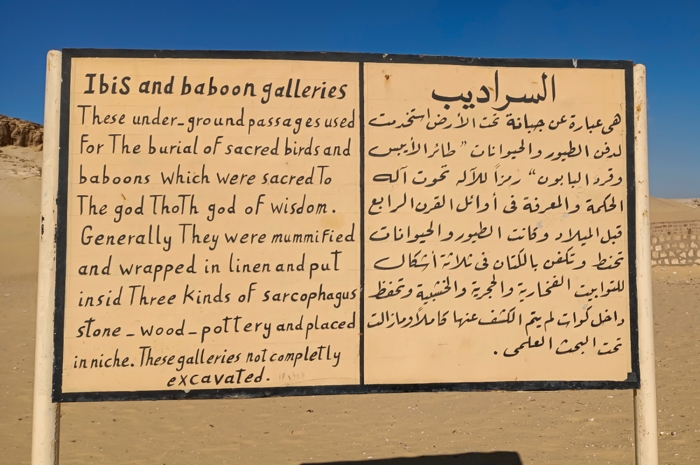 Ibis and baboon galleries
These under-ground passages used
For The burial of sacred birds and
baboons which were sacred To
The god ThoTh god of wisdom.
Generally They were mummified
and wrapped in linen and put
insid Three kinds of sarcophagus
stone _ wood _ pottery and placed
in niche. These galleries not completly
excavated.
السراديب
هى عبارة عن جبانة تحت الأرض استخدمت
لدفن الطيور والحيوانات " طائر الأيبس
وقرد البابون " رمزاً للآله تحوت آله
الحكمة والمعرفة فى أوائل القرن الرابع
قبل الميلاد وكانت الطيور والحيوانات
تحنط وتكفن بالكتان فى ثلاثة أشكال
للتوابيت الفخارية والحجرية والخشبية وتحفظ
داخل كوات لم يتم الكشف عنها كاملاً ومازالت
تحت البحث العلمى .